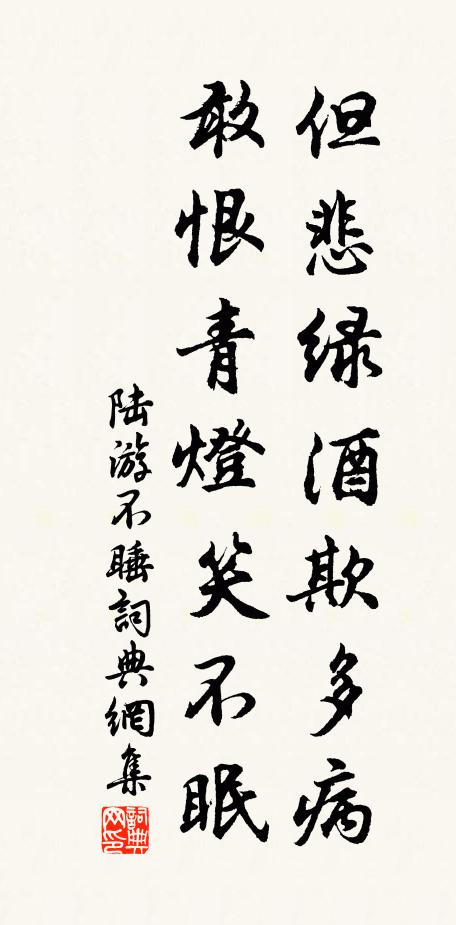 但悲绿酒欺多病
敢恨青燈笑不眠
陆游不睡詞典網集
詞典网印